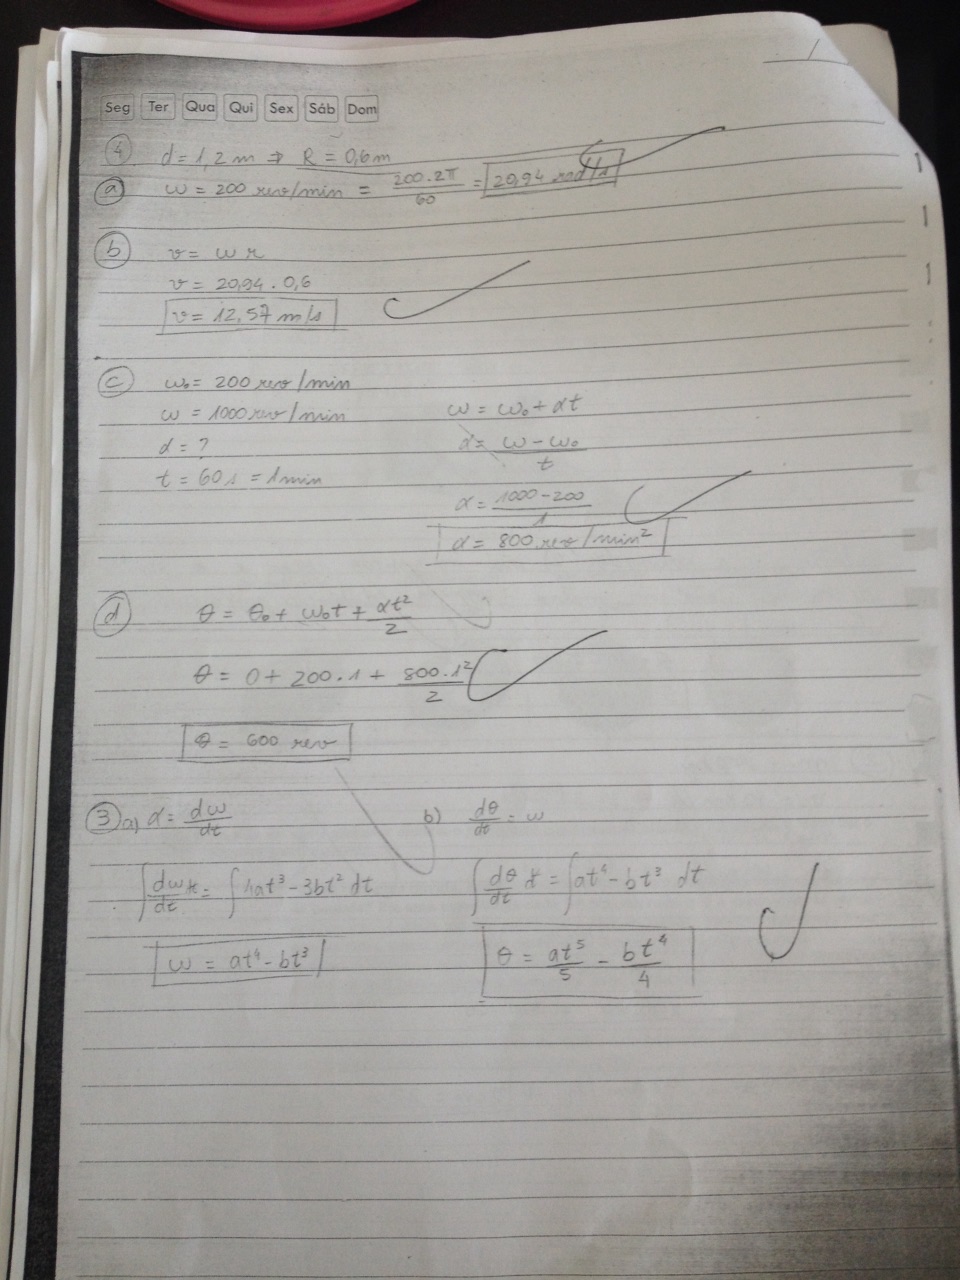 Seg Ter Qua Qui Sex Sáb Dom
4 d = 1,2 m ⇒ R = 0,6 m
a ω = 200 rev/min = 200 . 2π / 60 = 20,94 rad/s
b v = ω r
v = 20,94 . 0,6
v = 12,57 m/s
c ω₀ = 200 rev/min
ω = 1000 rev/min
α = ?
t = 60 s = 1 min
ω = ω₀ + αt
α = ω - ω₀ / t
α = 1000 - 200 / 1
α = 800 rev/min²
d θ = θ₀ + ω₀t + αt² / 2
θ = 0 + 200 . 1 + 800 . 1² / 2
θ = 600 rev
3 a) α = dω / dt
∫ dω / dt = ∫ 4at³ - 3bt² dt
ω = at⁴ - bt³
b) dθ / dt = ω
∫ dθ / dt = ∫ at⁴ - bt³ dt
θ = at⁵ / 5 - bt⁴ / 4